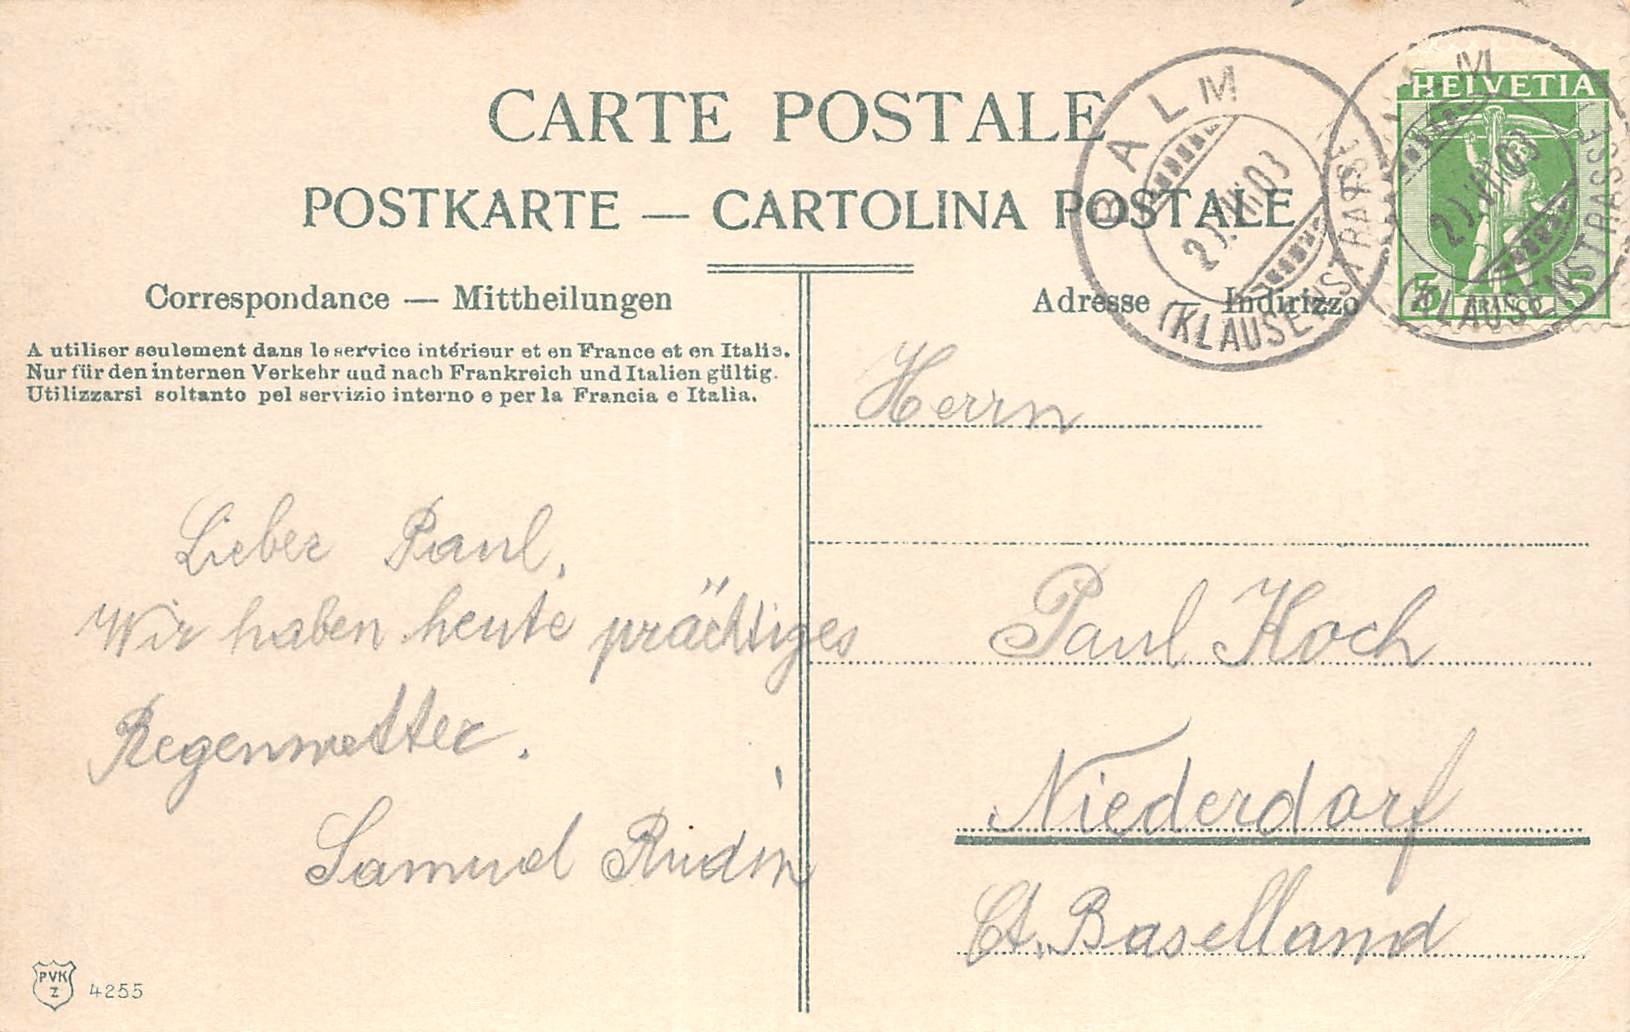 CARTE POSTALE
POSTKARTE — CARTOLINA POSTALE
Correspondance — Mittheilungen
Adresse — Indirizzo
A utiliser seulement dans le service intérieur et en France et en Italie.
Nur für den internen Verkehr und nach Frankreich und Italien gültig.
Utilizzarsi soltanto pel servizio interno e per la Francia e Italia.
BALM
(KLAUSENSTRASSE)
HELVETIA
5 FRANCO 5
BALM
(KLAUSENSTRASSE)
Lieber Paul,
Wir haben heute prächtiges
Regenwetter.
Samuel Rudin
Herrn
Paul Koch
Niederdorf
Ct. Baselland
PVK
Z
4255